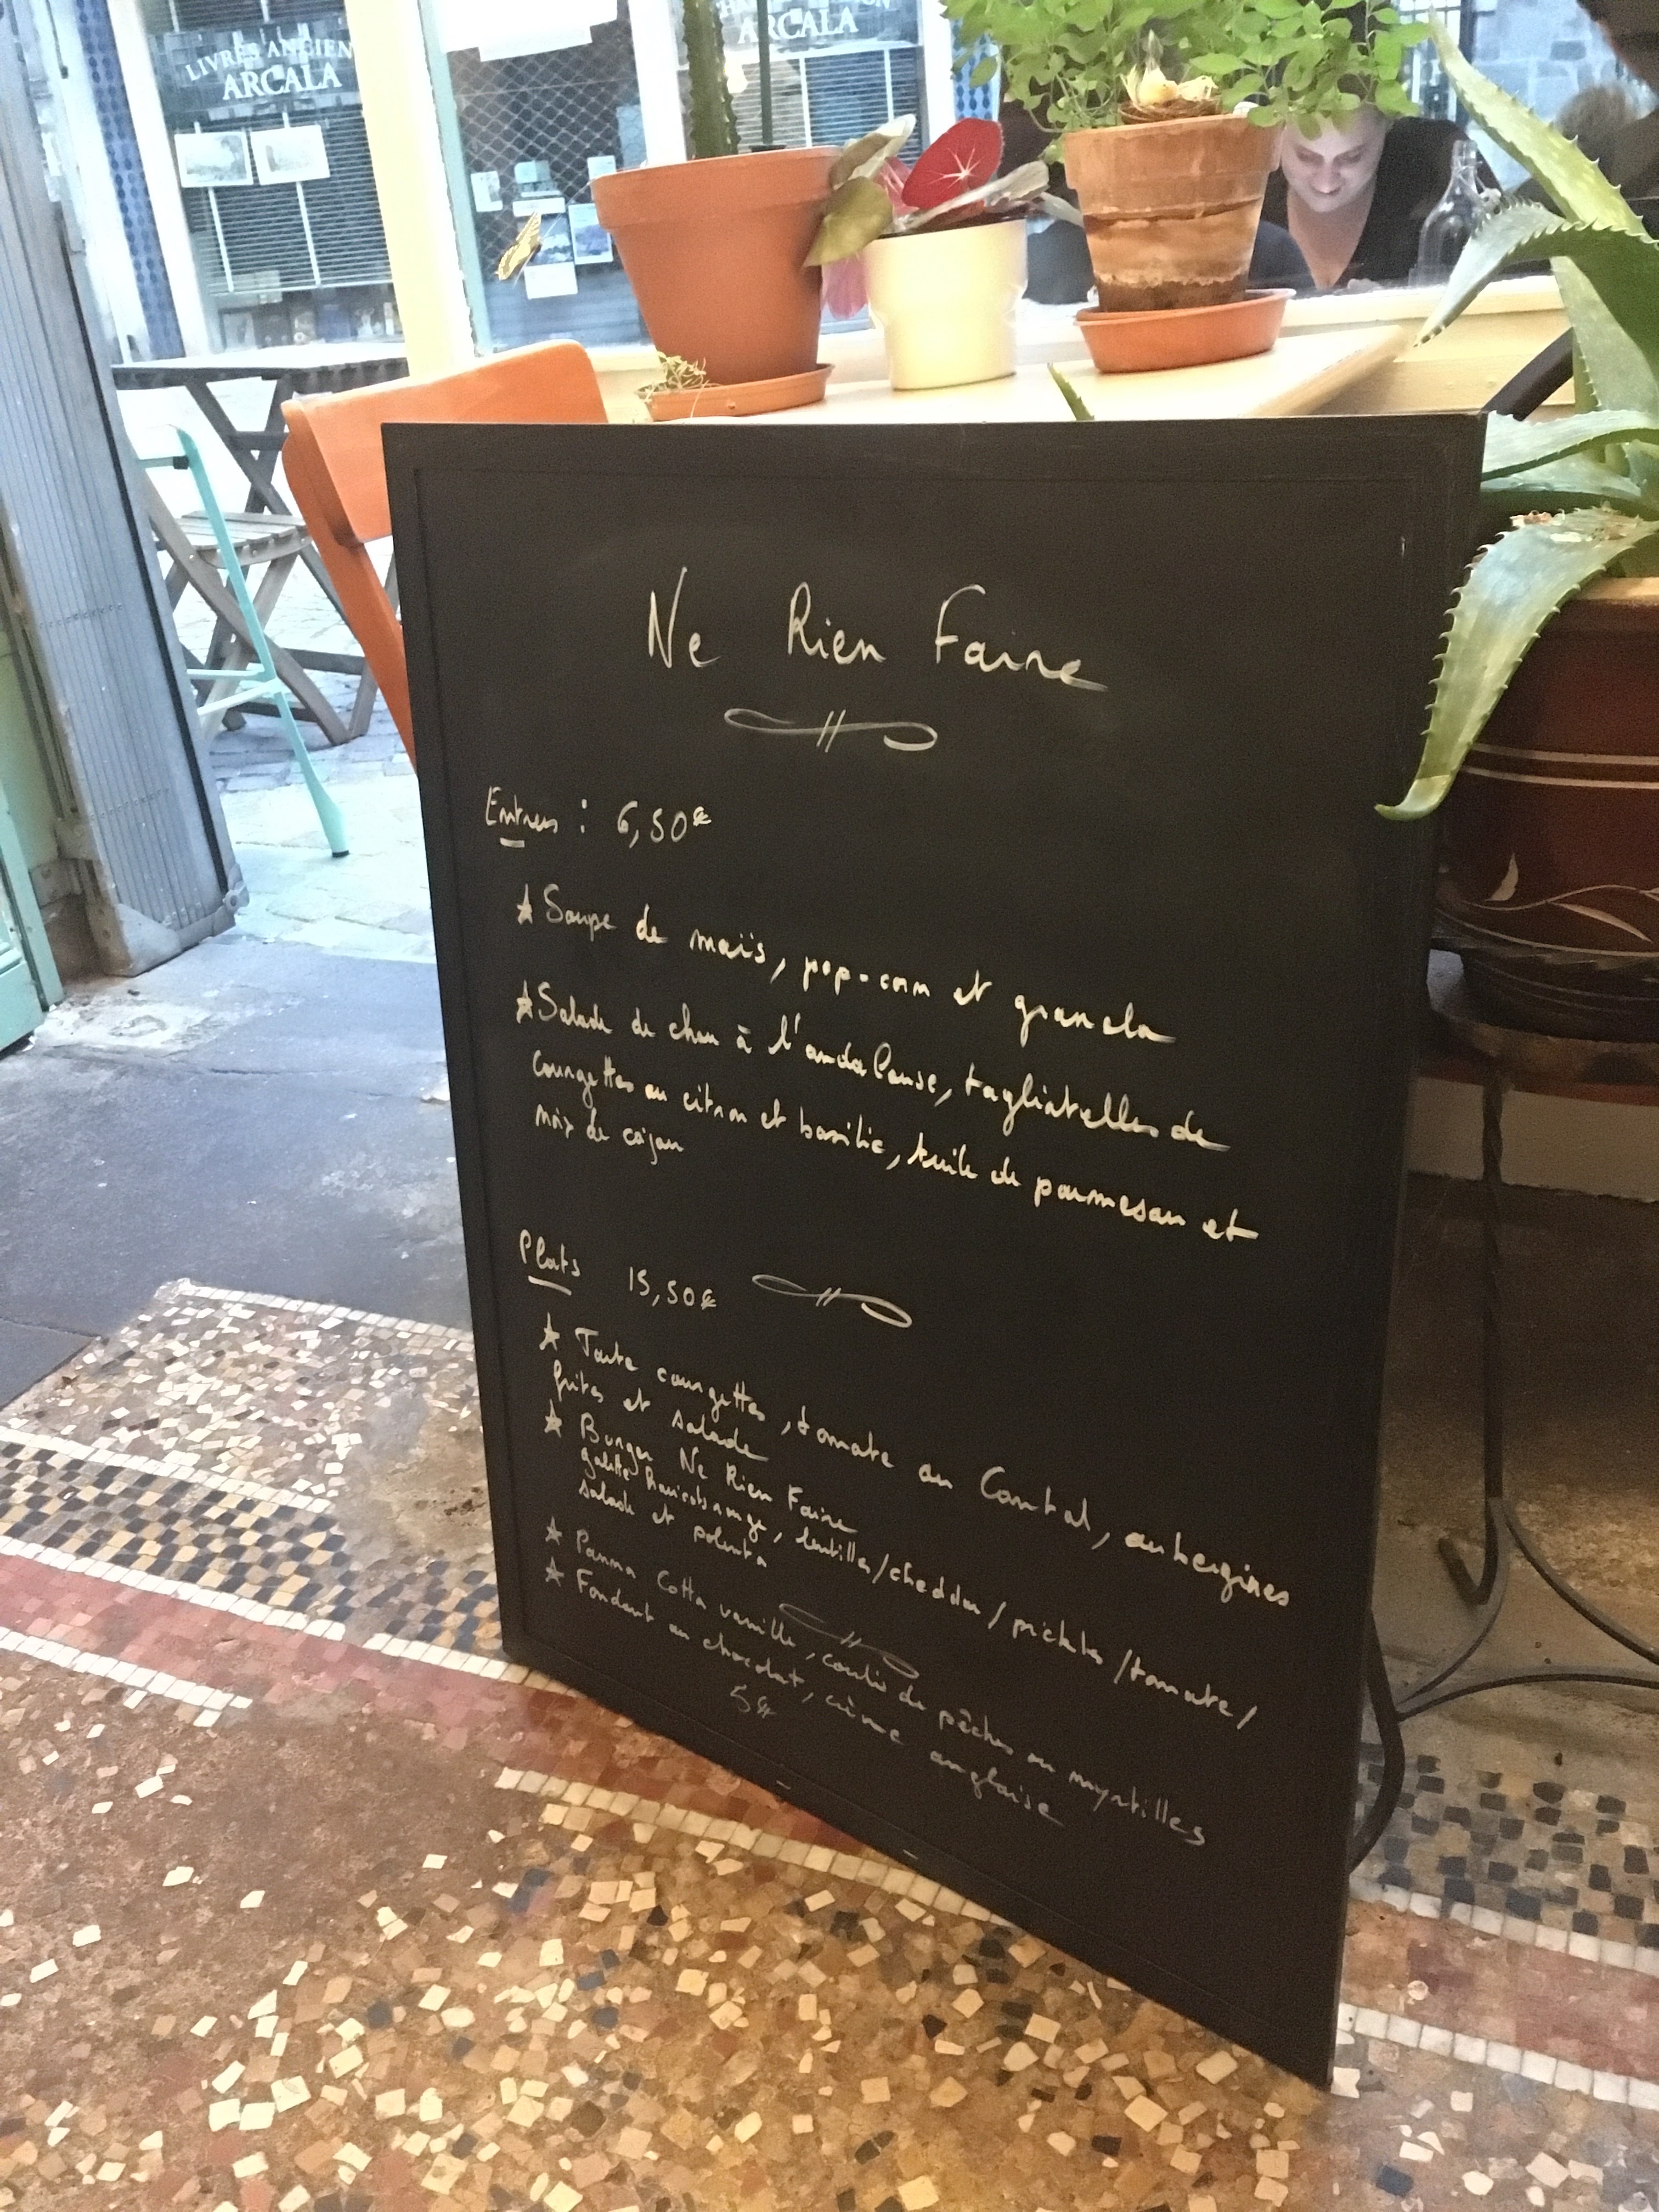 LIVRES ANCIEN
ARCALA
ARCALA
Ne Rien Faire
Entrees : 6,50€
Soupe de maïs, pop-corn et granola
Salade de chou à l'andalouse, tagliatelles de
courgettes au citron et basilic, tuile de parmesan et
noix de cajou
Plats 15,50€
Tarte courgettes, tomate au Cantal, aubergines
frites et salade
Burger Ne Rien Faire
galette haricots rouge, lentilles/cheddar/pickles/tomate/
salade et polenta
Panna Cotta vanille, coulis de pêches ou myrtilles
Fondant au chocolat, crème anglaise
5€